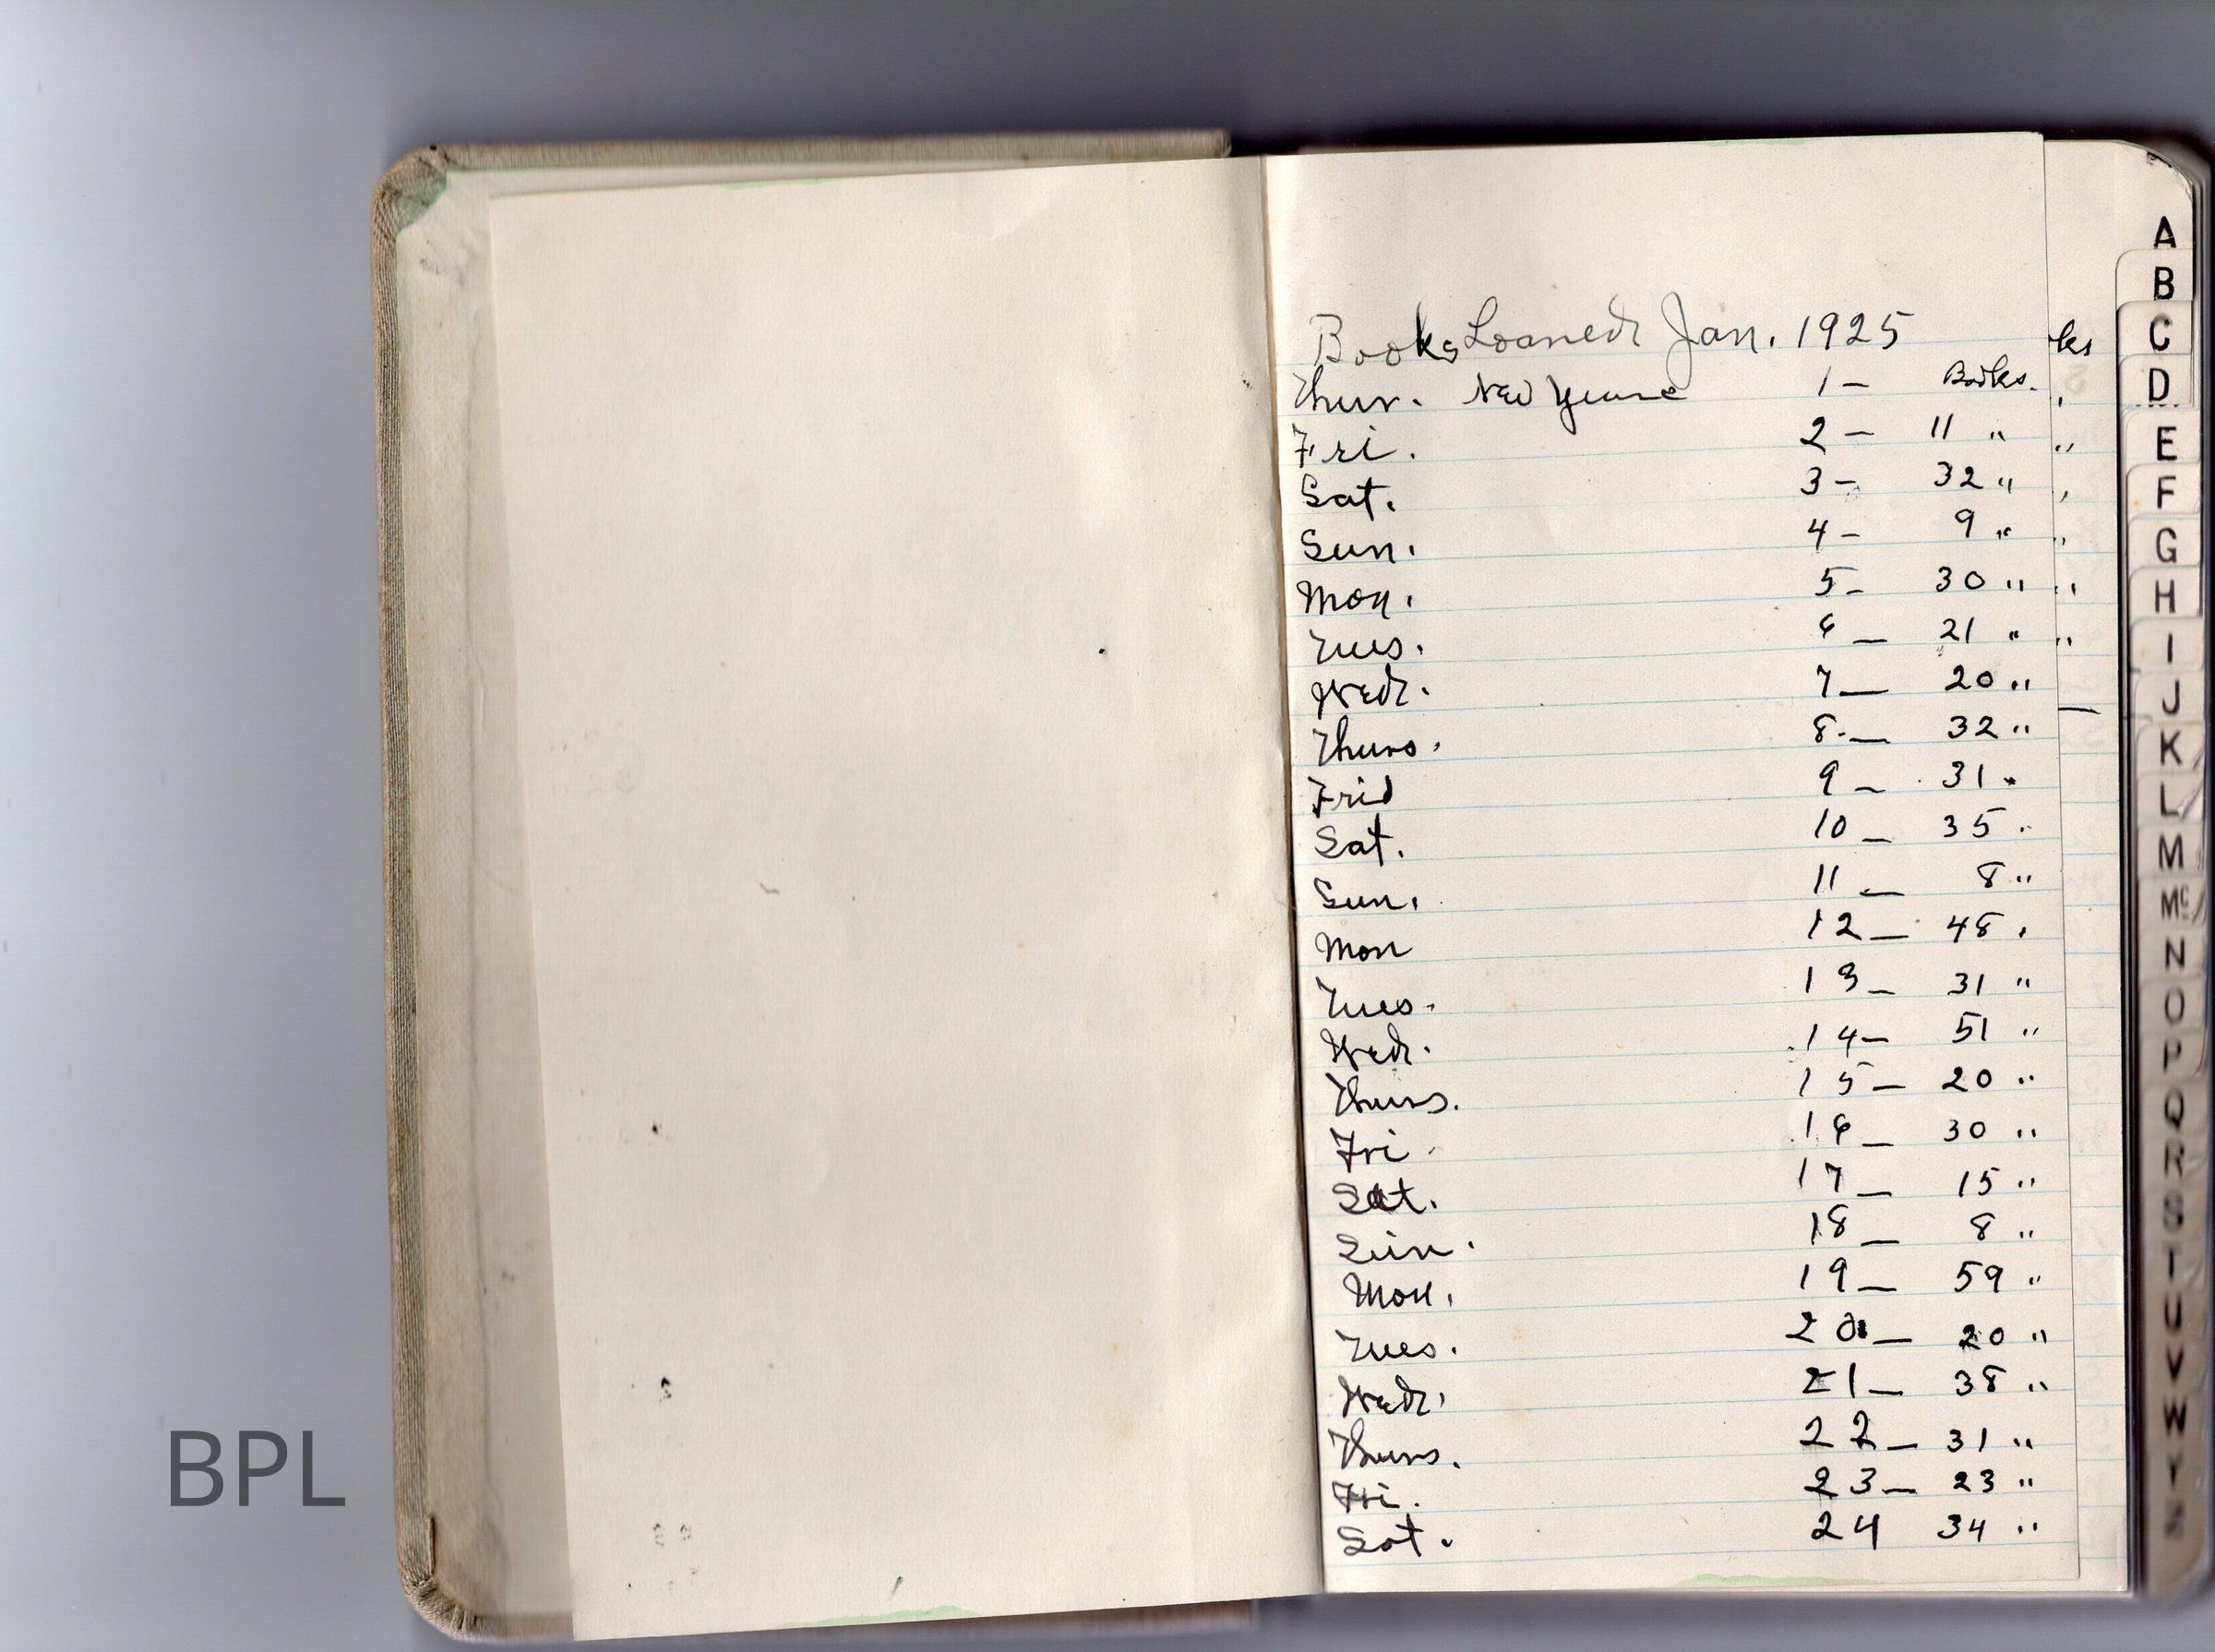 Books Loaned Jan. 1925
Thur. New Years 1 — Books.
Fri. 2 — 11 "
Sat. 3 — 32 "
Sun. 4 — 9 "
Mon. 5 — 30 "
Tues. 6 — 21 "
Wed. 7 — 20 "
Thurs. 8. — 32 "
Frid 9 — 31 "
Sat. 10 — 35 "
Sun. 11 — 8 "
Mon 12 — 48 "
Tues. 13 — 31 "
Wed. 14 — 51 "
Thurs. 15 — 20 "
Fri. 16 — 30 "
Sat. 17 — 15 "
Sun. 18 — 8 "
Mon. 19 — 59 "
Tues. 20 — 20 "
Wed. 21 — 38 "
Thurs. 22 — 31 "
Fri. 23 — 23 "
Sat. 24 34 "
ks
A
B
C
D
E
F
G
H
I
J
K
L
M
Mc
N
O
P
Q
R
S
T
U
V
W
Y
BPL